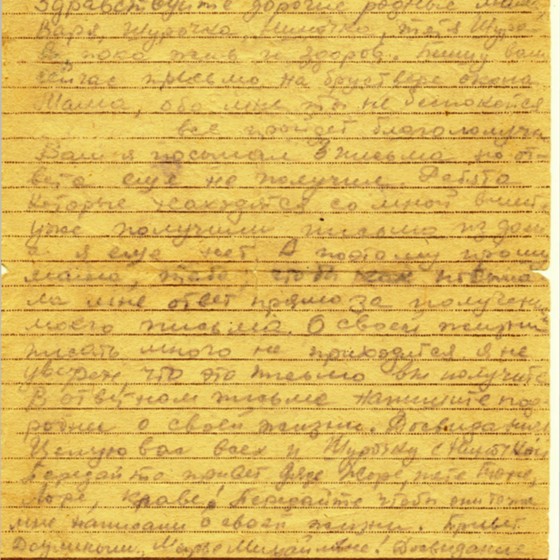 Здравствуйте дорогие родные мама,
Варя, Шурочка, Ниночка, тётя Шура
я пока жив и здоров. Пишу вам
сейчас письмо на бруствере окопа
Мама, обо мне ты не беспокойся
все пройдет благополучно
Вам я посылал 3 письма но от-
вета еще не получил. Ребята
которые находятся со мной вмест.
уже получили письма из дома
а я еще нет. А поэтому прошу
мама, чтобы
ла мне ответ прямо за получени
моего письма. О своей жизни
писать много не приходится. я не
уверен, что это письмо вы получите
В ответном письме напишите под-
робно о своей жизни. Досвидания
Целую вас всех и Шурочку и Ниночку
Передайте привет дяде Жоре, тете
Передайте чтобы они тоже
мне написали о своей жизни. Привет
Марье Михайловне! Досвидание